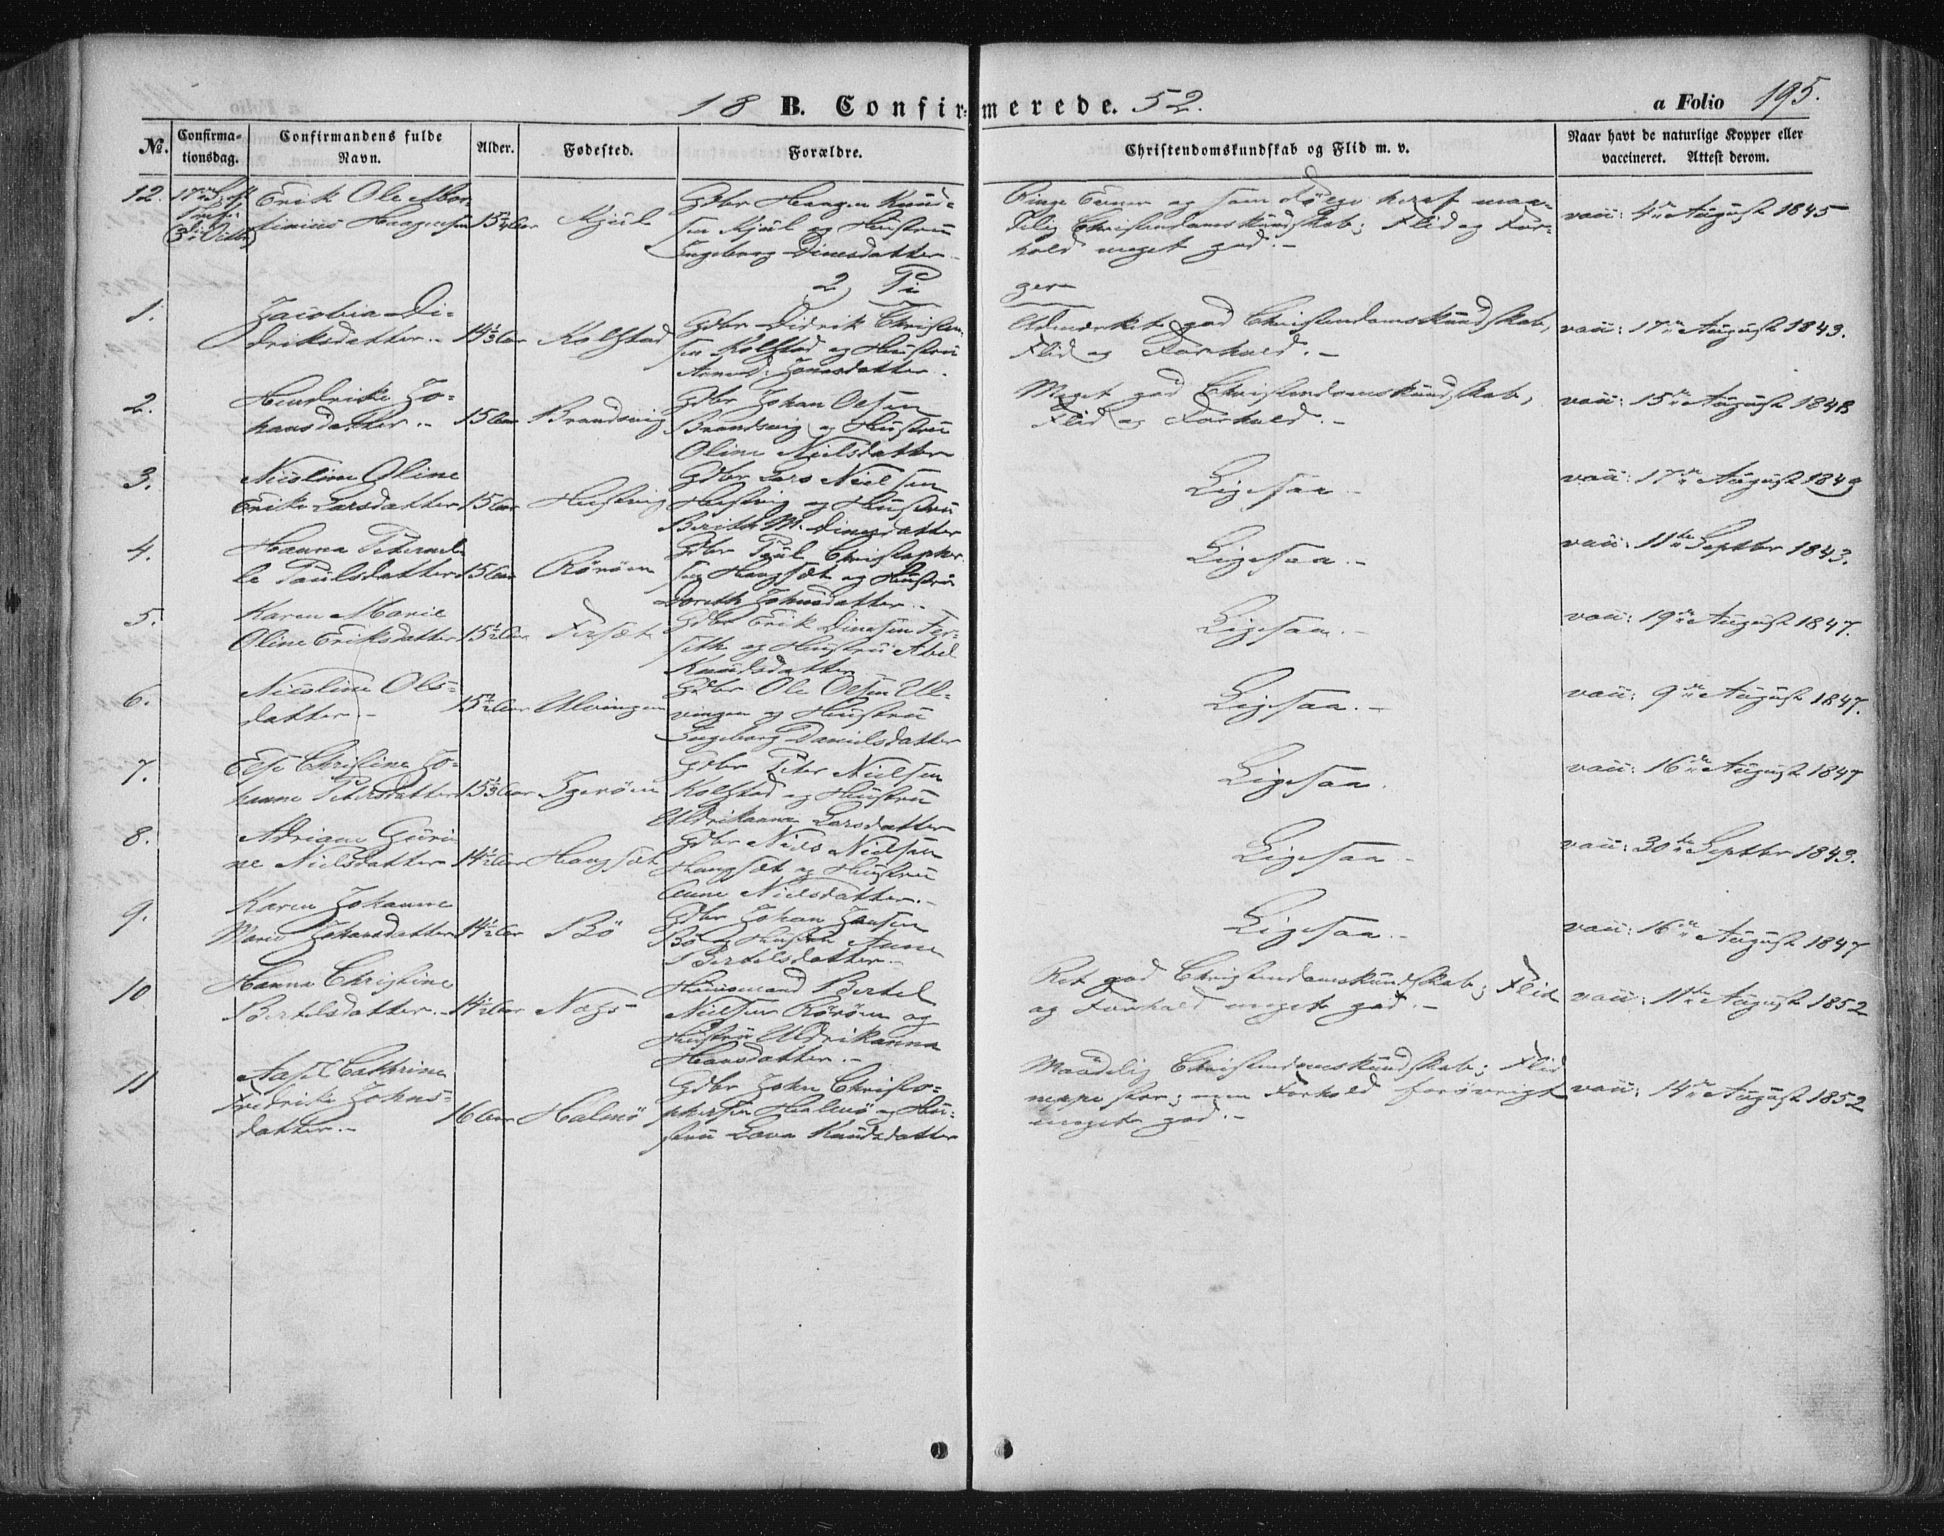 18 B. Confirmerede. 52.
a Folio 195.
No. Confirmationsdag. Confirmandens fulde Navn. Alder. Fødested. Forældre. Christendomskundskab og Flid m. v. Naar havt de naturlige Kopper eller vaccineret. Attest derom.
12. Erik Ole
Haagensen
Gdbr Haagen Knud-
sen og Hustru
Ingeborg Dinesdatter
Ringe Evner og som Følge heraf maa-
delig Christendomskundskab; Flid og For-
hold meget god.-
vacc: 4de August 1845
2) Pi
ger
1. Jacobia Di-
driksdatter.- 14 1/3 Aar Kolstad
Gdbr Didrik Christen-
sen Kolstad og Hustru
Jonasdatter.
Udmærket god Christendomskundskab,
Flid og Forhold.-
vacc: 17de August 1843.
2. Hendrike Jo-
hansdatter.- 15 Aar Brandsvig
Gdbr Johan Olsen
Brandsvig og Hustru
Oline Nielsdatter
Meget god Christendomskundskab,
Flid og Forhold.-
vacc: 15de August 1848
3. Nicoline Oline
Erike Larsdatter 15 Aar
Gdbr Lars Nielsen
og Hustru
Berith M. Dinesdatter
Ligesaa.-
vacc: 17de August 1849
4. Hanna Peternel-
le Paulsdatter 15 Aar Rørøen
Gdbr Paul Christopher-
sen Haugsæt og Hustru
Doreth Johnsdatter.-
Ligesaa.-
vacc: 11te Septbr 1843.
5. Karen Marie
Oline Eriksdatter 15 1/2 Aar Fersæt
Gdbr Erik Dinesen Fer-
seth og Hustru Abel
Knudsdatter
Ligesaa.-
vacc: 19de August 1847.
6. Nicoline Ols-
datter.- 15 1/2 Aar Ulvingen
Gdbr Ole Olsen Ul-
vingen og Hustru
Ingeborg Danielsdatter
Ligesaa.-
vacc: 9de August 1847.
7. Else Christine Jo-
hanne Petersdatter 15 1/3 Aar
Gdbr Peter Nielsen
Kolstad og Hustru
Uldrikanna Larsdatter
Ligesaa.
vacc: 16de August 1847
8. Adriane Guri-
ne Nielsdatter 14 1/2 Aar Haugsæt
Gdbr Niels Nielsen
Haugsæt og Hustru
Anne Nielsdatter.-
Ligesaa.-
vacc: 30te Septbr 1843.
9. Karen Johanne
Marie Johansdatter 14 1/2 Aar Bø
Gdbr Johan Jansen
Bø og Hustru Anne
Bertelsdatter.-
Ligesaa.-
vacc: 16de August 1847
10. Hanna Christine
Bertelsdatter.- 14 1/2 Aar
Huusmand Bertel
Nielsen Rørøen og
Hustru Uldrikanna
Hansdatter.-
Ret god Christendomskundskab; Flid
og Forhold meget god.-
vacc: 11te August 1852
11 Cathrine
Fredrike Johns-
datter.- 16 Aar Halmø
Gdbr John Christo-
phersen Halmø og Hu-
stru Lava Knudsdatter
Maadelig Christendomskundskab; Flid
neppe stor; men Forhold forøvrigt
meget god.-
vacc: 14de August 1852